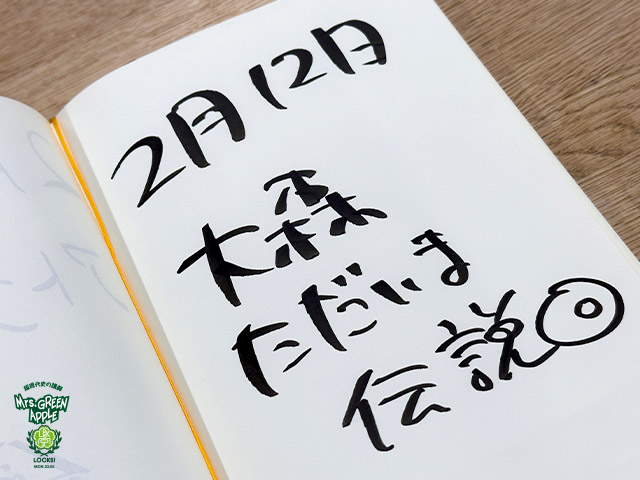 2月12日
大森
ただいま
伝説◎
Mrs. GREEN
APPLE
LOCKS!